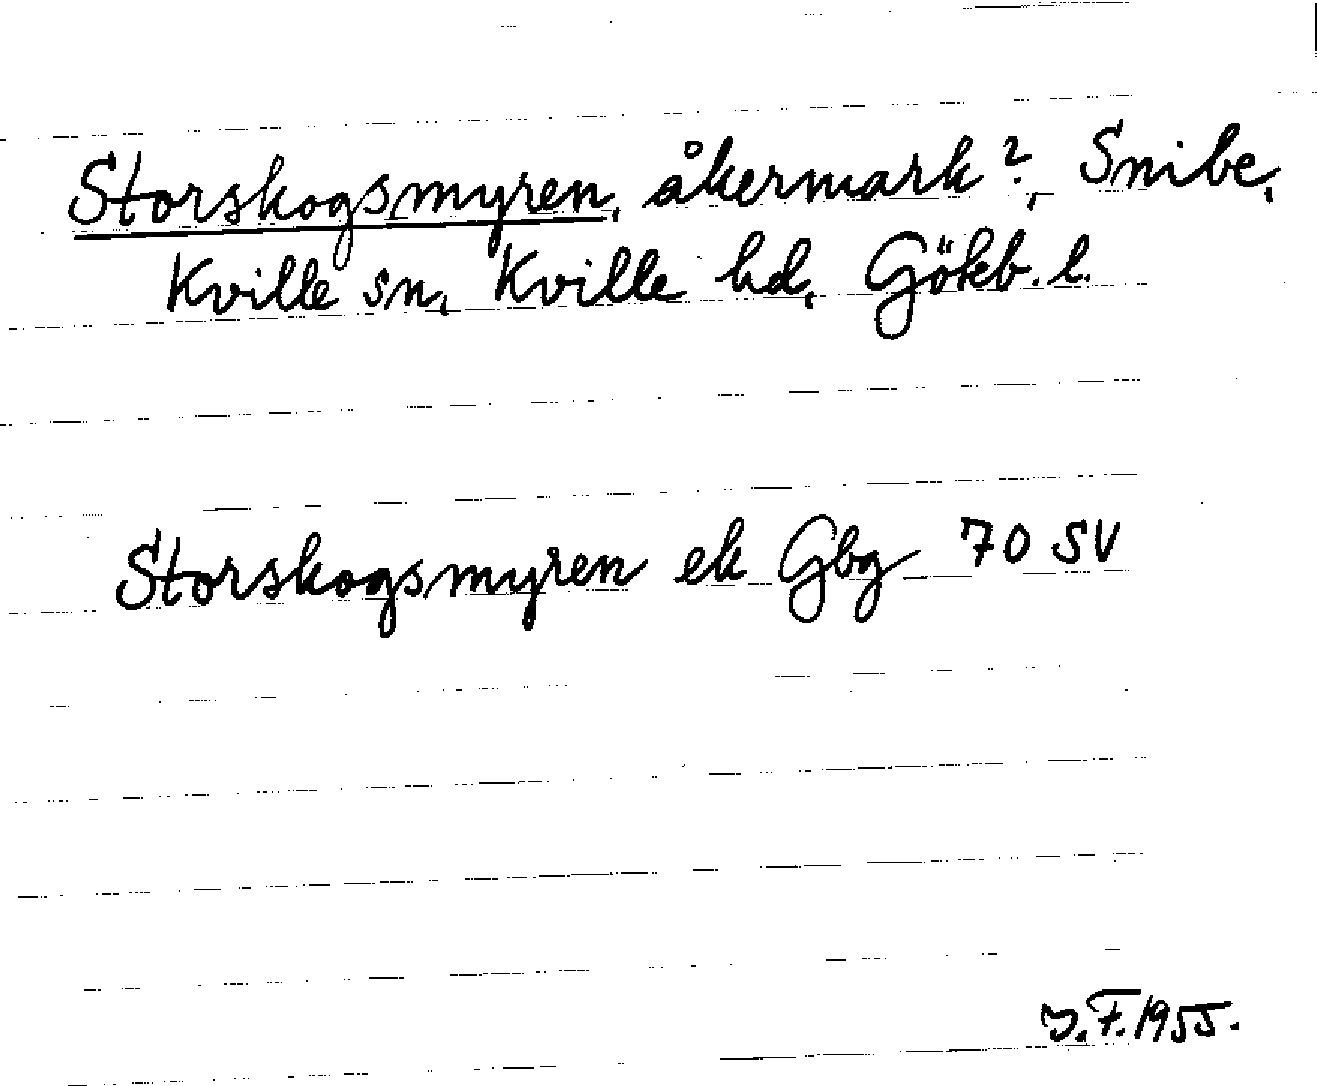 Storskogsmyren, åkermark?, Snibe,
Kville sn, Kville hd, Gökb. l.
Storskogsmyren ek Gbg 70 SV
J.F. 1955.